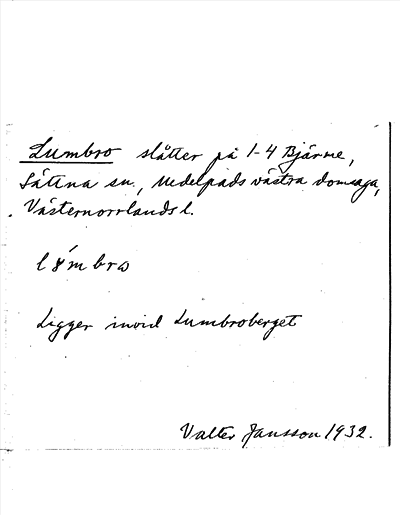 Lumbro slåtter på 1-4 Bjärme,
Sättna sn., Medelpads västra domsaga,
Västernorrlands l.
Ligger invid Lumbroberget
Valter Jansson 1932.